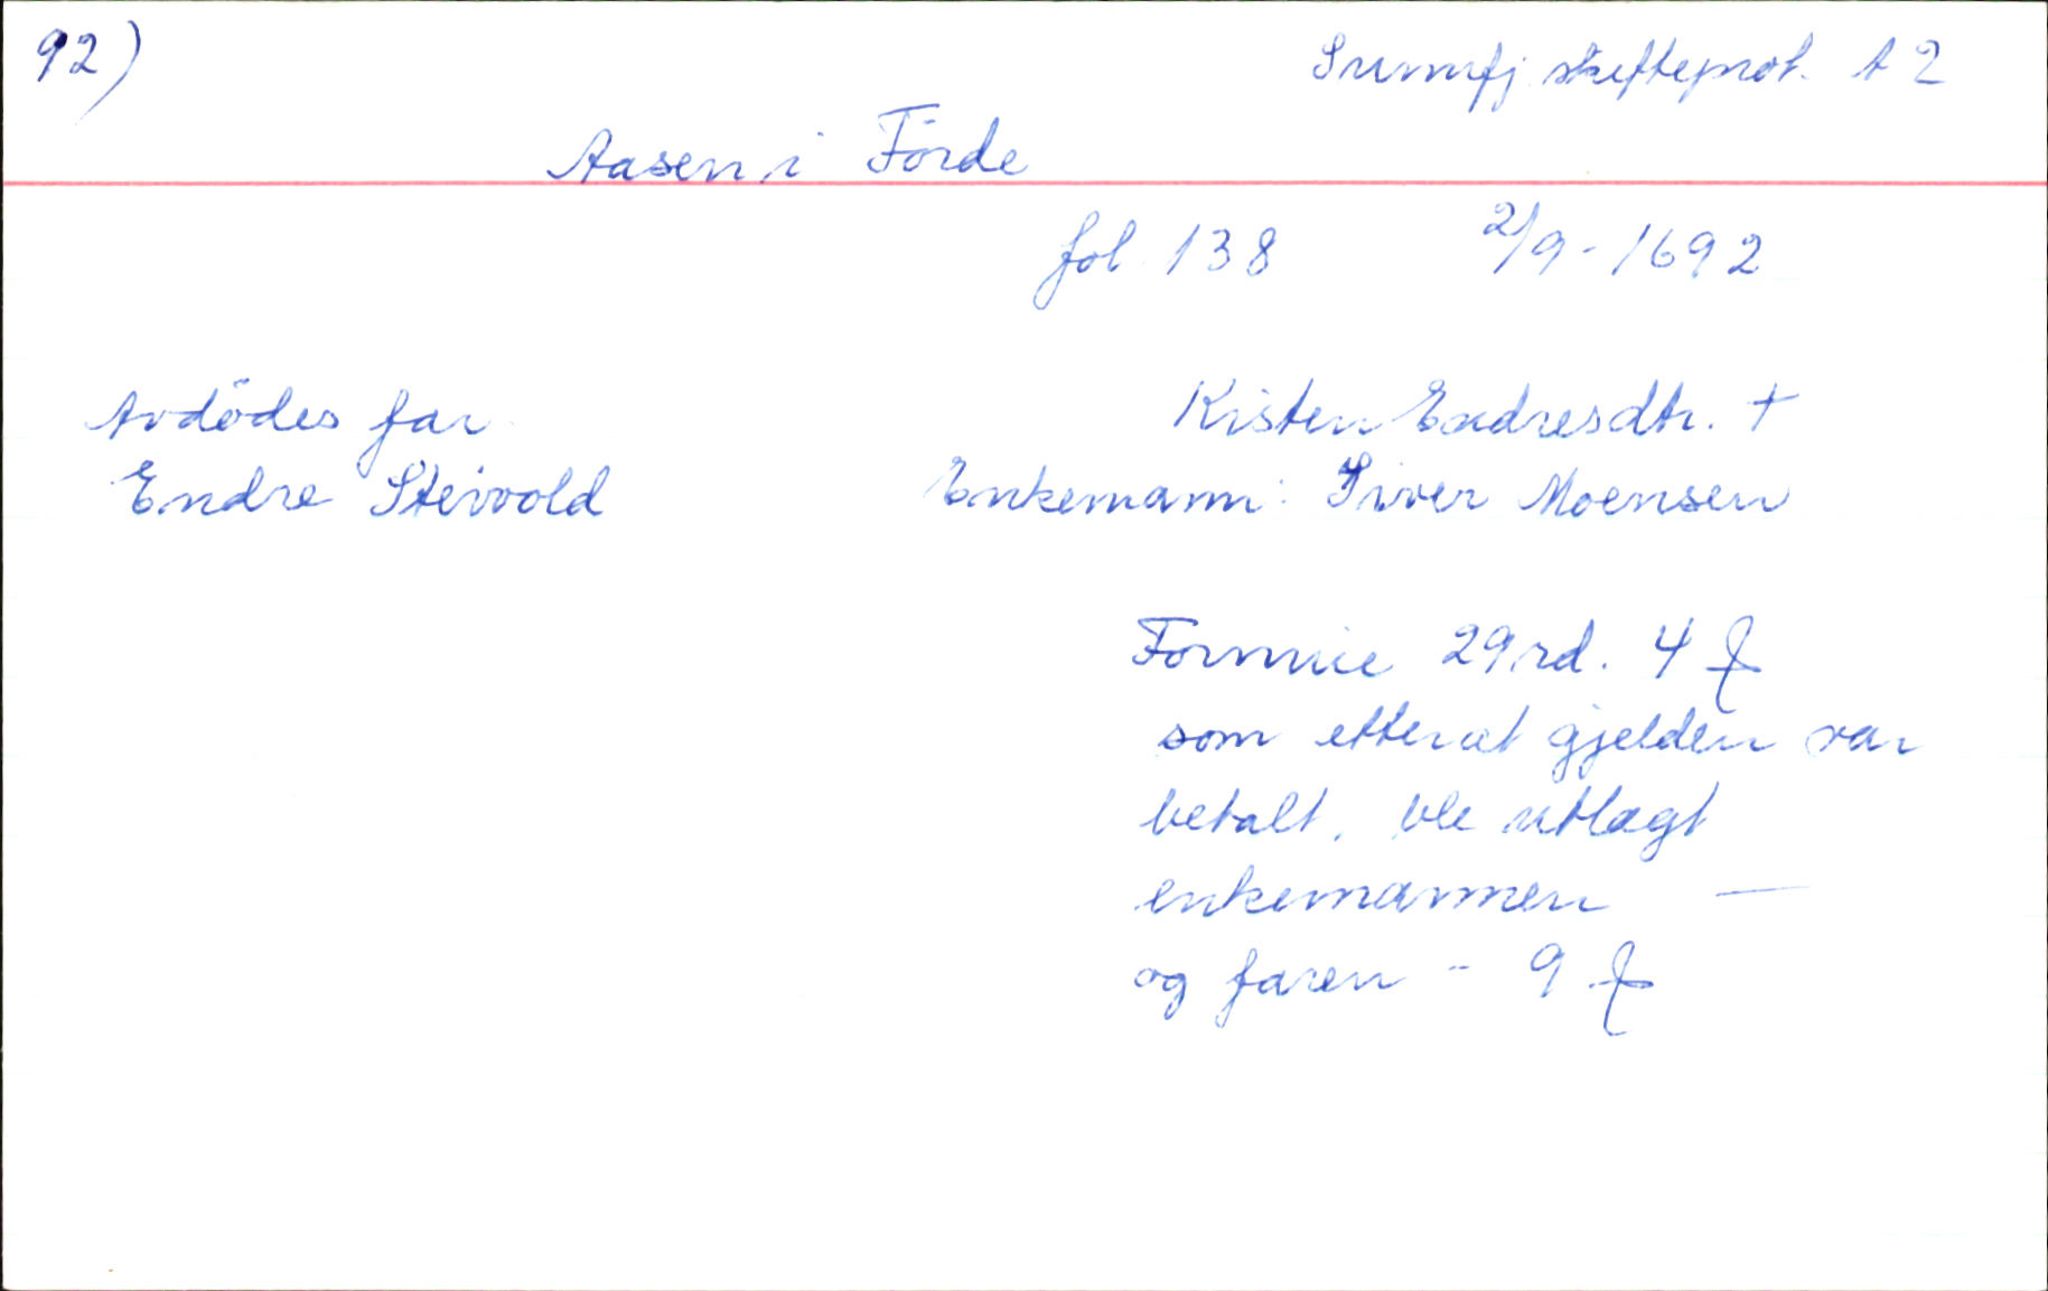 92)
Sunnfj. skifteprot. A 2
Aasen i Förde
fol. 138 2/9-1692
Avdödes far
Endre Steivold
Kisten Endresdtr. +
Enkemann: Siver Moensen
Formue 29 rd. 4 ₰
som etterat gjelden var
betalt, ble utlagt
enkemannen —
og faren - 9 ₰